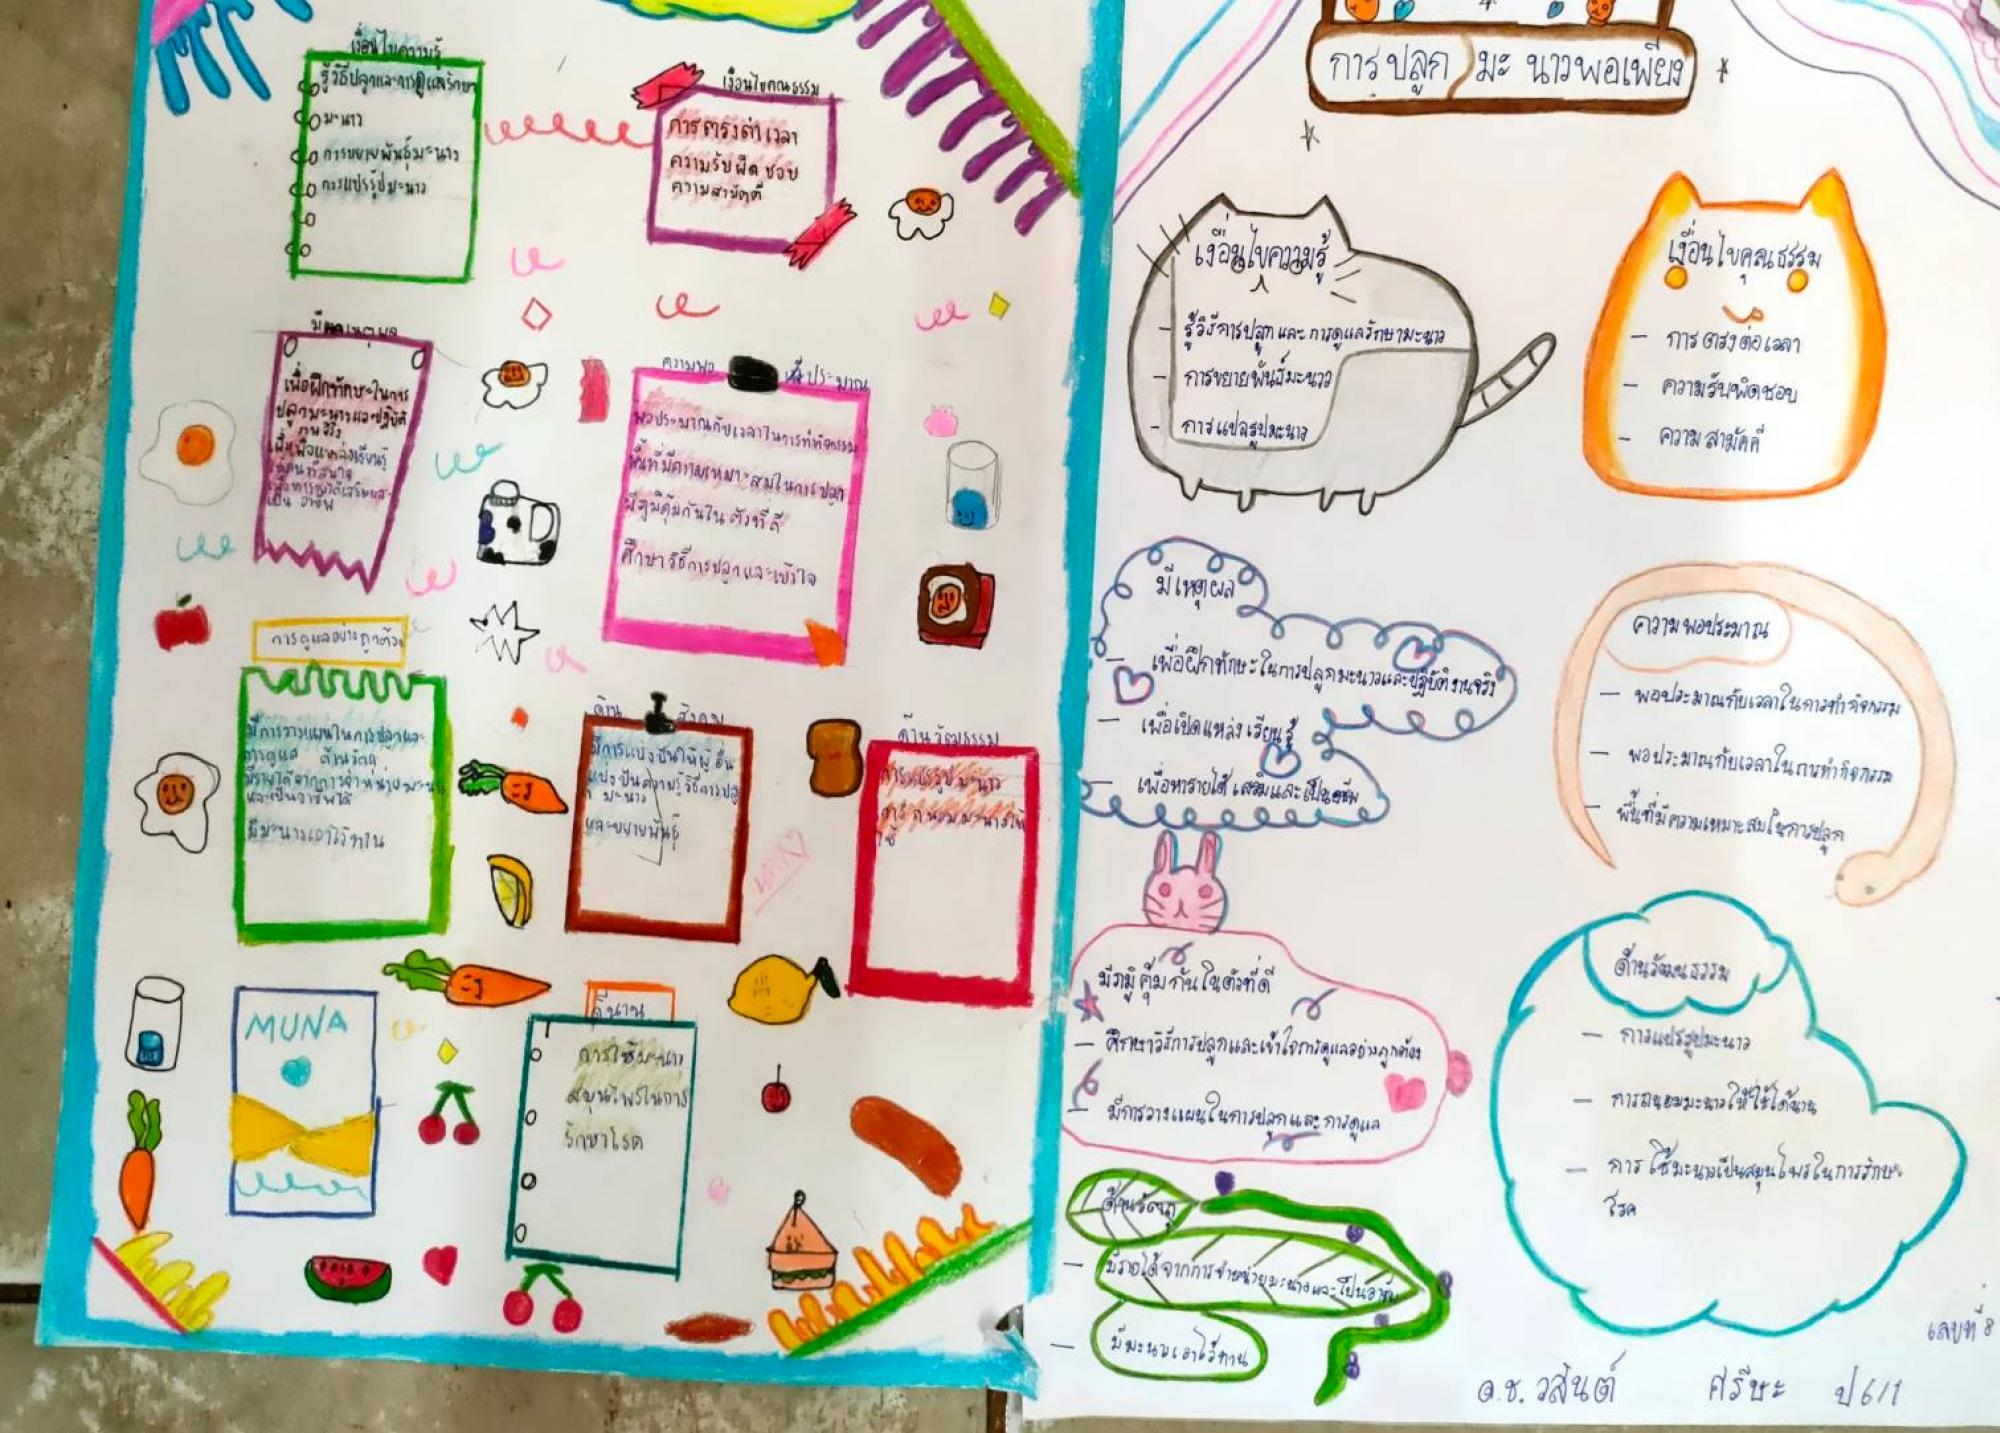 เงื่อนไขความรู้
รู้วิธีปลูกและการดูแลรักษา
มะนาว
การขยายพันธุ์มะนาว
การแปรรูปมะนาว
เงื่อนไขคุณธรรม
การตรงต่อเวลา
ความรับผิดชอบ
ความสามัคคี
มีเหตุผล
เพื่อฝึกทักษะในการ
ปลูกมะนาวและปฏิบัติ
งานจริง
ความพอ ประมาณ
พอประมาณกับเวลาในการทำกิจกรรม
พื้นที่มีความเหมาะสมในการปลูก
มีภูมิคุ้มกันในตัวที่ดี
ศึกษาวิธีการปลูกและเข้าใจ
การดูแลอย่างถูกต้อง
มีการวางแผนในการปลูกและ
การดูแล ด้านวัตถุ
มีรายได้จากการจำหน่ายมะนาว
และเป็นอาชีพได้
มีมะนาวเอาไว้ทาน
ด้าน สังคม
มีการแบ่งปันให้ผู้อื่น
แบ่งปันความรู้วิธีการปลู
ก มะนาว
และขยายพันธุ์
ด้านวัฒธรรม
การแปรรูปมะนาว
การถนอมมะนาวให้
ใช้
MUNA
ได้นาน
การใช้มะนาว
สมุนไพรในการ
รักษาโรค
การปลูกมะนาวพอเพียง
เงื่อนไขความรู้
- รู้วิธีการปลูกและการดูแลรักษามะนาว
- การขยายพันธ์มะนาว
- การแปลรูปมะนาว
เงื่อนไขคุณธรรม
- การตรงต่อเวลา
- ความรับผิดชอบ
- ความสามัคคี
มีเหตุผล
- เพื่อฝึกทักษะในการปลูกมะนาวและปฏิบัติงานจริง
- เพื่อเปิดแหล่งเรียนรู้
- เพื่อหารายได้เสริมและเป็นอาชีพ
ความพอประมาณ
- พอประมาณกับเวลาในการทำกิจกรรม
- พอประมาณกับเวลาในการทำกิจกรรม
- พื้นที่มีความเหมาะสมในการปลูก
มีภูมิคุ้มกันในตัวที่ดี
- ศึกษาวิธีการปลูกและเข้าใจการดูแลอย่างถูกต้อง
- มีการวางแผนในการปลูกและการดูแล
ด้านวัตถุ
- มีรายได้จากการจำหน่ายมะนาวและเป็นอาชีพ
- มีมะนาวเอาไว้ทาน
ด้านวัฒนธรรม
- การแปรรูปมะนาว
- การถนอมมะนาวให้ใช้ได้นาน
- การใช้มะนาวเป็นสมุนไพรในการรักษา
โรค
เลขที่ 8
ด.ช.วสันต์ ศรีษะ ป6/1